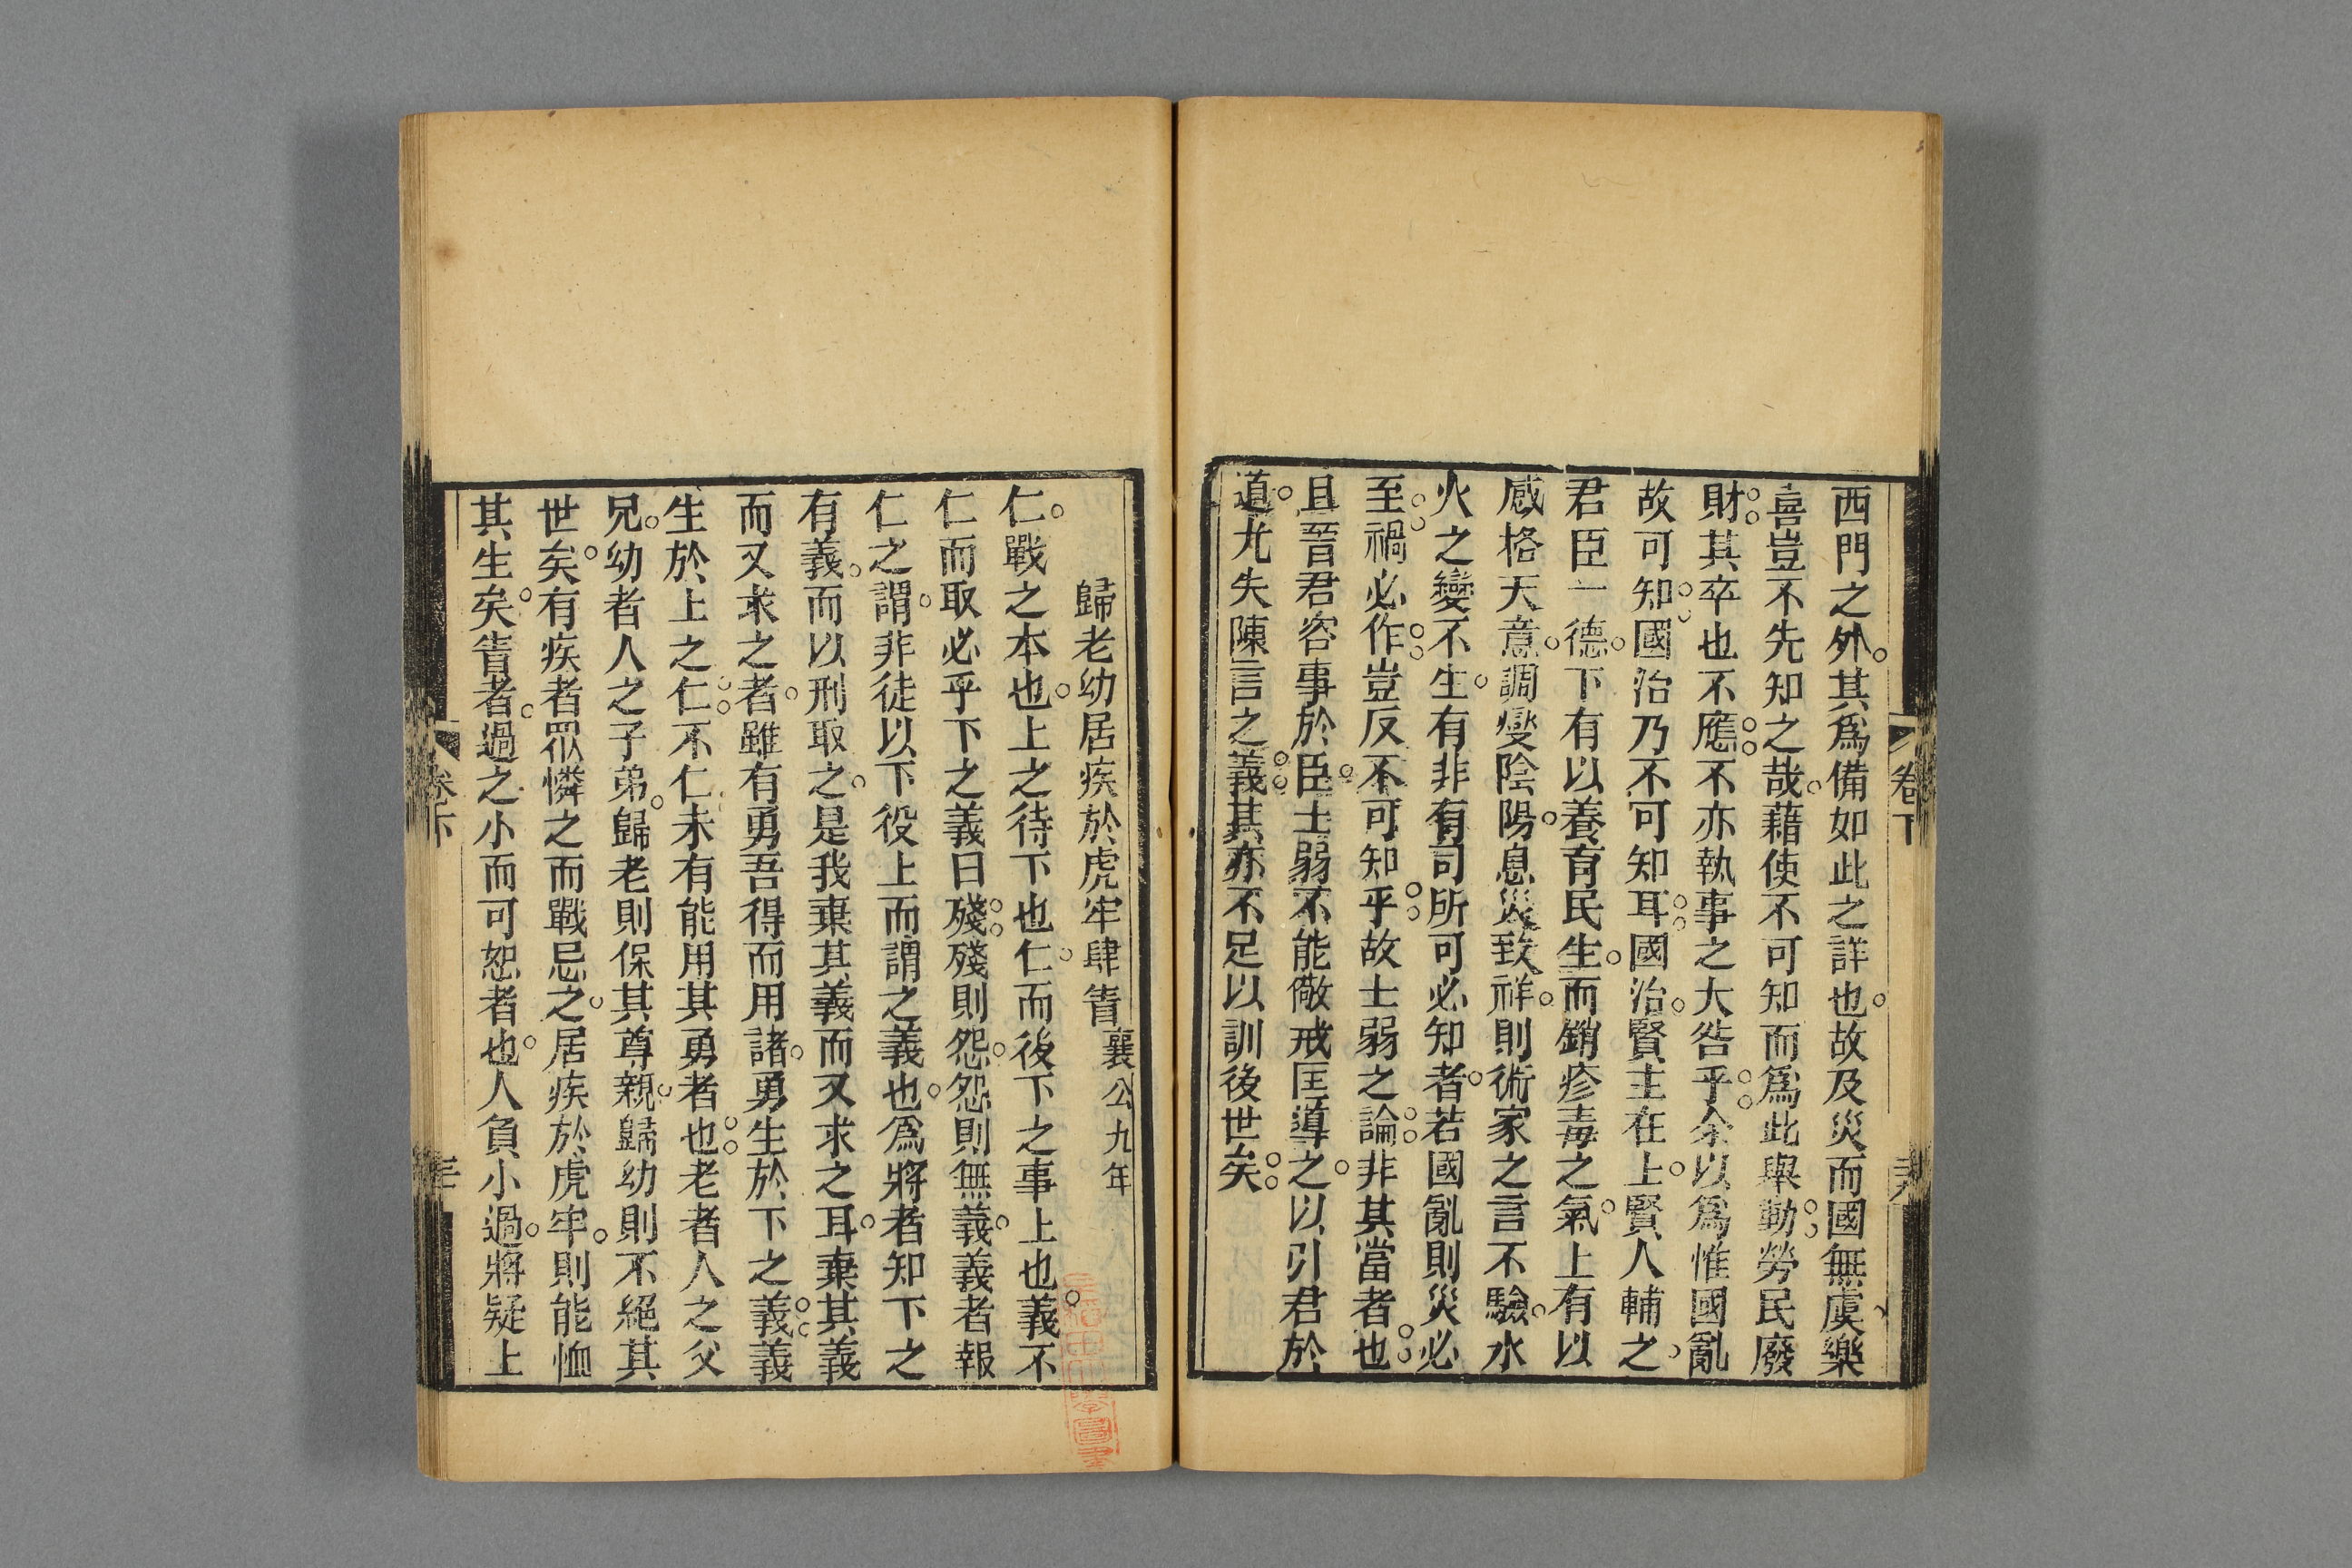 西門之外其爲備如此之詳也故及災而國無虞樂
喜豈不先知之哉藉使不可知而爲此舉勤勞民廢
財其卒也不應不亦執事之大咎乎余以爲惟國亂
故可知國治乃不可知耳國治賢主在上賢人輔之
君臣一德下有以養育民生而銷疹毒之氣上有以
感格天意調燮陰陽息災致祥則術家之言不驗水
火之變不生有非有司所可必知者若國亂則災必
至禍必作豈反不可知乎故士弱之論非其當者也
且晉君咨事於臣士弱不能儆戒匡導之以引君於
道尤失陳言之義其亦不足以訓後世矣
卷下
歸老幼居疾於虎牢肆眚襄公九年
仁戰之本也上之待下也仁而後下之事上也義不
仁而取必乎下之義曰殘殘則怨怨則無義義者報
仁之謂非徒以下役上而謂之義也爲將者知下之
有義而以刑取之是我棄其義而又求之耳棄其義
而又求之者雖有勇吾得而用諸勇生於下之義義
生於上之仁不仁未有能用其勇者也老者人之父
兄幼者人之子弟歸老則保其尊親歸幼則不絕其
世矣有疾者眾憐之而戰忌之居疾於虎牢則能恤
其生矣眚者過之小而可恕者也人負小過將疑上
卷下